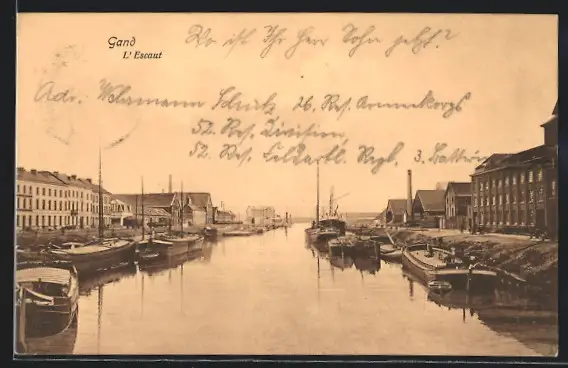 Gand
L'Escaut
Wo ist Ihr Herr Sohn jetzt?
Adr. Wehrmann Schütz 26. Res. Armeekorps
52. Res. Division
52. Res. Feldartl. Regt. 3. Batterie